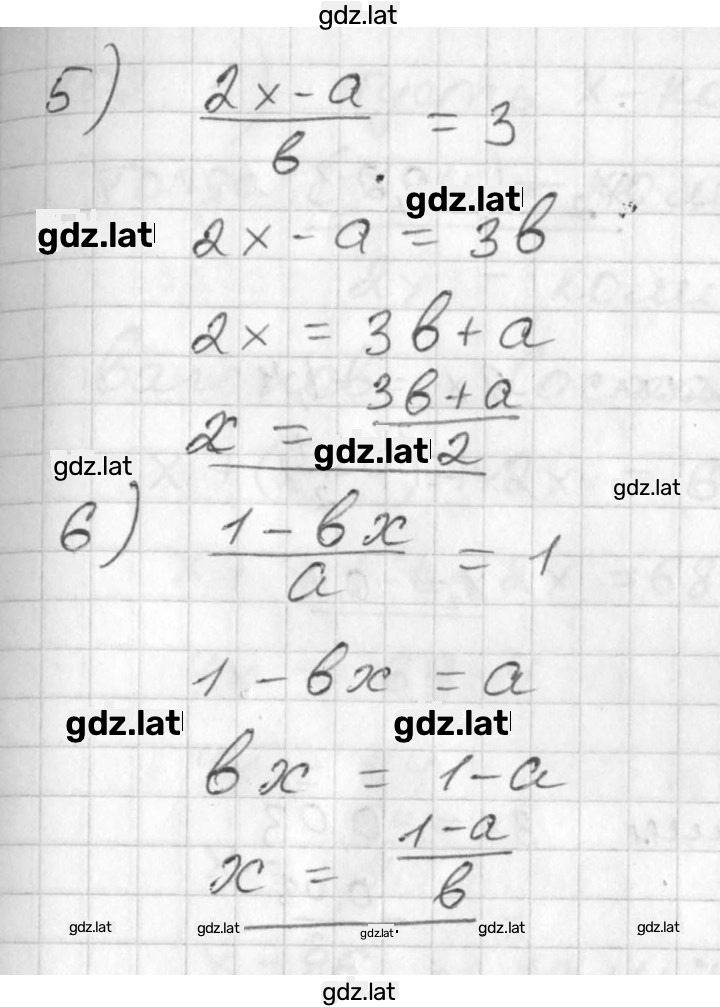 gdz.lat
5) (2x - a)/в = 3
gdz.lat
gdz.lat 2x - a = 3в
2x = 3в + a
x = (3в + a)/2
gdz.lat
gdz.lat
gdz.lat
6) (1 - вx)/a = 1
1 - вx = a
gdz.lat gdz.lat
вx = 1 - a
x = (1 - a)/в
gdz.lat gdz.lat gdz.lat gdz.lat gdz.lat
gdz.lat